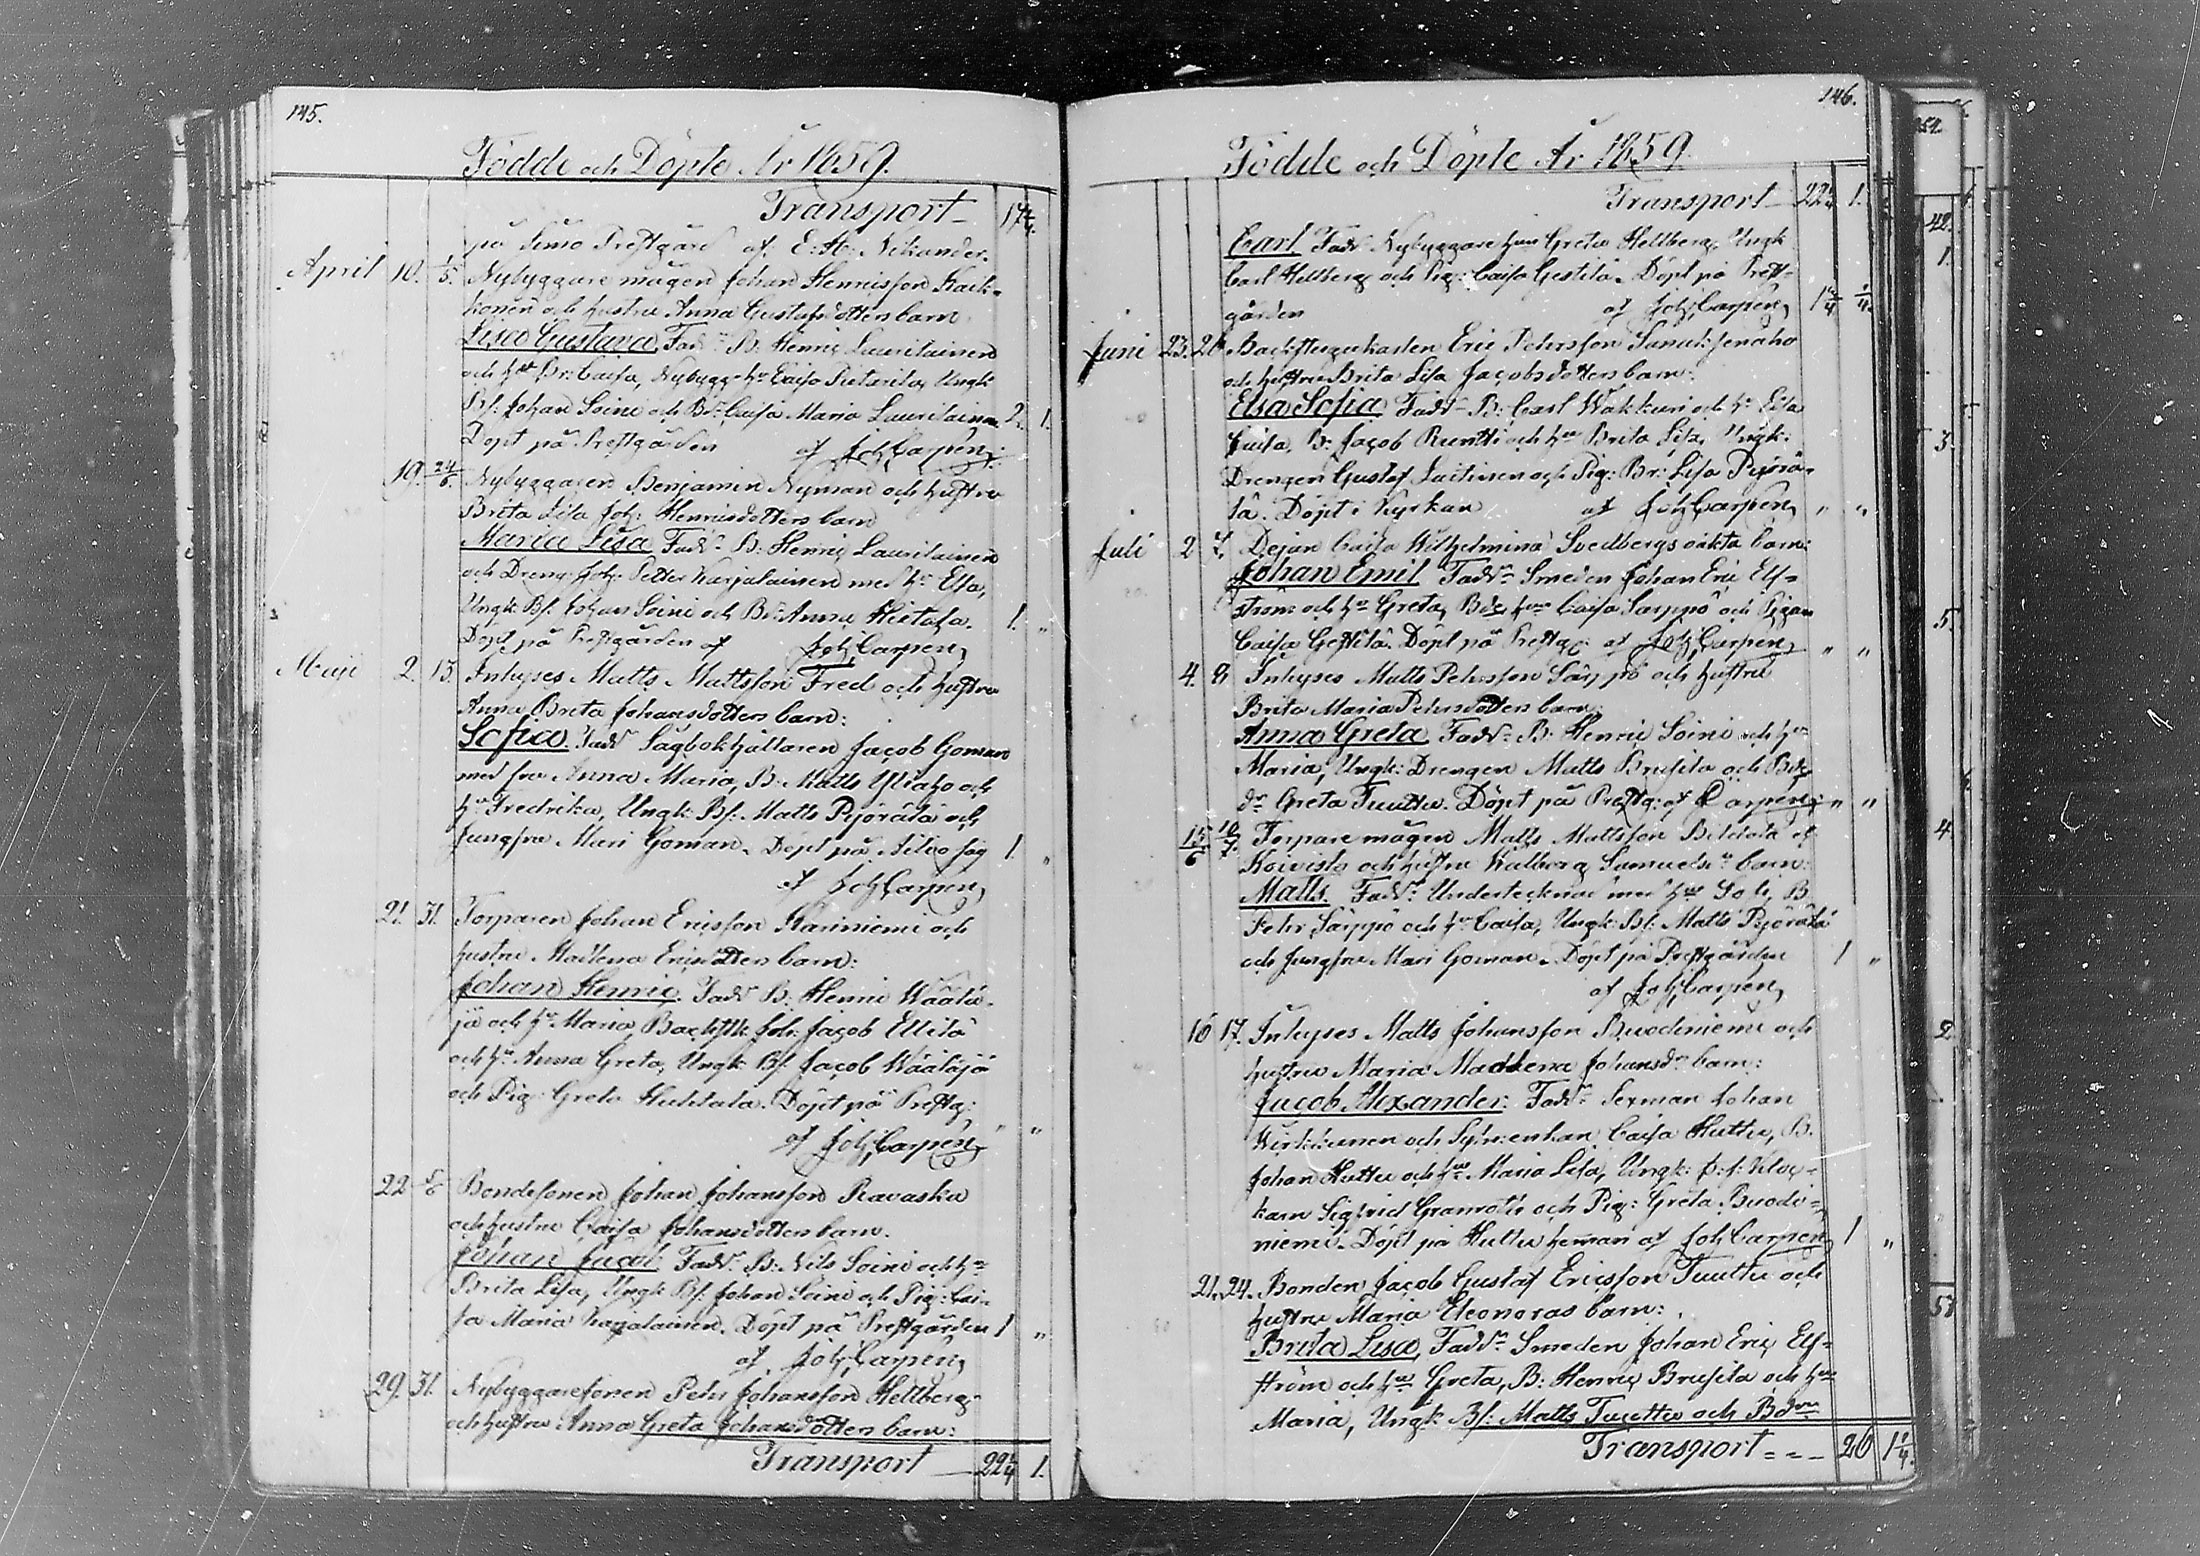 145.
Födde och Döpte År 1859.
Transport 17 3/4.
på Simo Prestgård af E: H: Nikander.
April 10. 1/5. Nybyggare mågen Johan Henricsson Kaik-
konen och hustru Anna Gustafsdotters barn
Lisa Gustava, Fadr: B: Henric Lauritainen
och hust Br: Caisa, Nybygg: hu Caisa Pietarila, Ungk:
Bs: Johan Soini och Bdr: Caisa Maria Lauritainen 2. 1.
Döpt på Prestgården af Joh. Carpén,
19. 24/6. Nybyggaren Benjamin Nyman och hustru
Brita Lisa Joh: Henricsdotters barn
Maria Lisa Fadr: B: Henric Lauritainen
och Dreng: Joh: Petter Karjalainen med hu Elsa,
Ungk: Bs. Johan Soini och Bdr: Anna Hietala. 1. "
Döpt på Prestgården af Joh. Carpén,
Maji 2. 13. Inhyses Matts Mattsson Fred och hustru
Anna Brita Johansdotters barn:
Sofia. Fadr Sågbokhållaren Jacob Goman
med fru Anna Maria, B: Matts Yliaho och
hu Fredrika, Ungk: Bs: Matts Pyörälä och
Jungfru Mari Goman. Döpt på såg 1. "
af Joh. Carpén,
21. 31. Torparen Johan Ericsson Kariniemi och
hustru Madlena Ericsdotters barn:
Johan Henric. Fadr B: Henric Määtä-
jä och hu Maria, Backstk: Joh: Jacob Ellilä
och hu Anna Greta, Ungk: Bs: Jacob Määtäjä
och Pig: Greta Huhtala. Döpt på Prestg:
af Joh. Carpén " "
22 5/6 Bondesonen Johan Johansson Ravaska
och hustru Caisa Johansdotters barn.
Johan Jacob Fadr: B: Nils Soini och hu
Brita Lisa, Ungk: Bs: Johan Soini och Pig: Cai-
sa Maria Karjalainen. Döpt på Prestgården 1 "
af Joh. Carpén,
29. 31. Nybyggaresonen Petr Johansson Hellberg
och hustru Anna Greta Johansdotters barn:
Transport 22 3/4 1.
146.
Födde och Döpte År 1859.
Transport 22 3/4 1.
Carl. Fadr: Nybyggare hu Greta Hellberg, Ungk:
Carl Hellberg och Pig: Caisa Gestilä. Döpt på Prest-
gården af Joh. Carpén, 1 1/4 1/4.
Juni 23. 26 Backstugukarlen Eric Petersson
och hustru Brita Lisa Jacobsdotters barn:
Elsa Sofia Fadr: B: Carl Wakkuri och hu Elsa
Caisa, B: Jacob Runtti och hu Brita Lisa, Ungk:
Drengen Gustaf Laitinen och Pig: Br: Lisa Pyörä-
lä. Döpt i Kyrkan af Joh. Carpén, " "
Juli 2 7. Dejan Caisa Wilhelmina Svedbergs oäkta barn:
Johan Emil Fadr: Smeden Johan Eric Elf-
ström och hu Greta, Bde hu Caisa Särppö och Pigan
Caisa Gestilä. Döpt på Prestg: af Joh. Carpén " "
4. 9. Inhyses Matts Petersson Särppö och hustru
Brita Maria Petersdotters barn:
Anna Greta Fadr: B: Henric Soini och hu
Maria, Ungk: Drengen Matts Brusila och Bde
dr Greta Tuuttu. Döpt på Prestg: af Carpén " "
15/6 10/7. Torpare mågen Matts Mattsson
Koivisto och hustru Walborg Samuelsdr barn:
Matts Fadr: Undertecknad med hu , B:
Petr Särppö och hu Caisa, Ungk: Bs: Matts Pyörälä
och Jungfru Mari Goman. Döpt på Prestgården 1 "
af Joh. Carpén,
16 17. Inhyses Matts Johansson Buodinieme och
hustru Maria Madlena Johansdr barn:
Jacob Alexander. Fadr: Sexman Johan
Wirkkunen och Caisa Huttu, B:
Johan Huttu och hu Maria Lisa, Ungk: 
Sigfrid Granroth och Pig: Greta Buodi-
nieme. Döpt på Huttu heman af Joh. Carpén 1 "
21. 24. Bonden Jacob Gustaf Ericsson Tuuttu och
hustru Maria Eleonoras barn:
Brita Lisa, Fadr: Smeden Johan Eric Elf-
ström och hu Greta, B: Henric Brusila och hu
Maria, Ungk: Bs: Matts Tuuttu och Bdr
Transport 26 1 1/4.